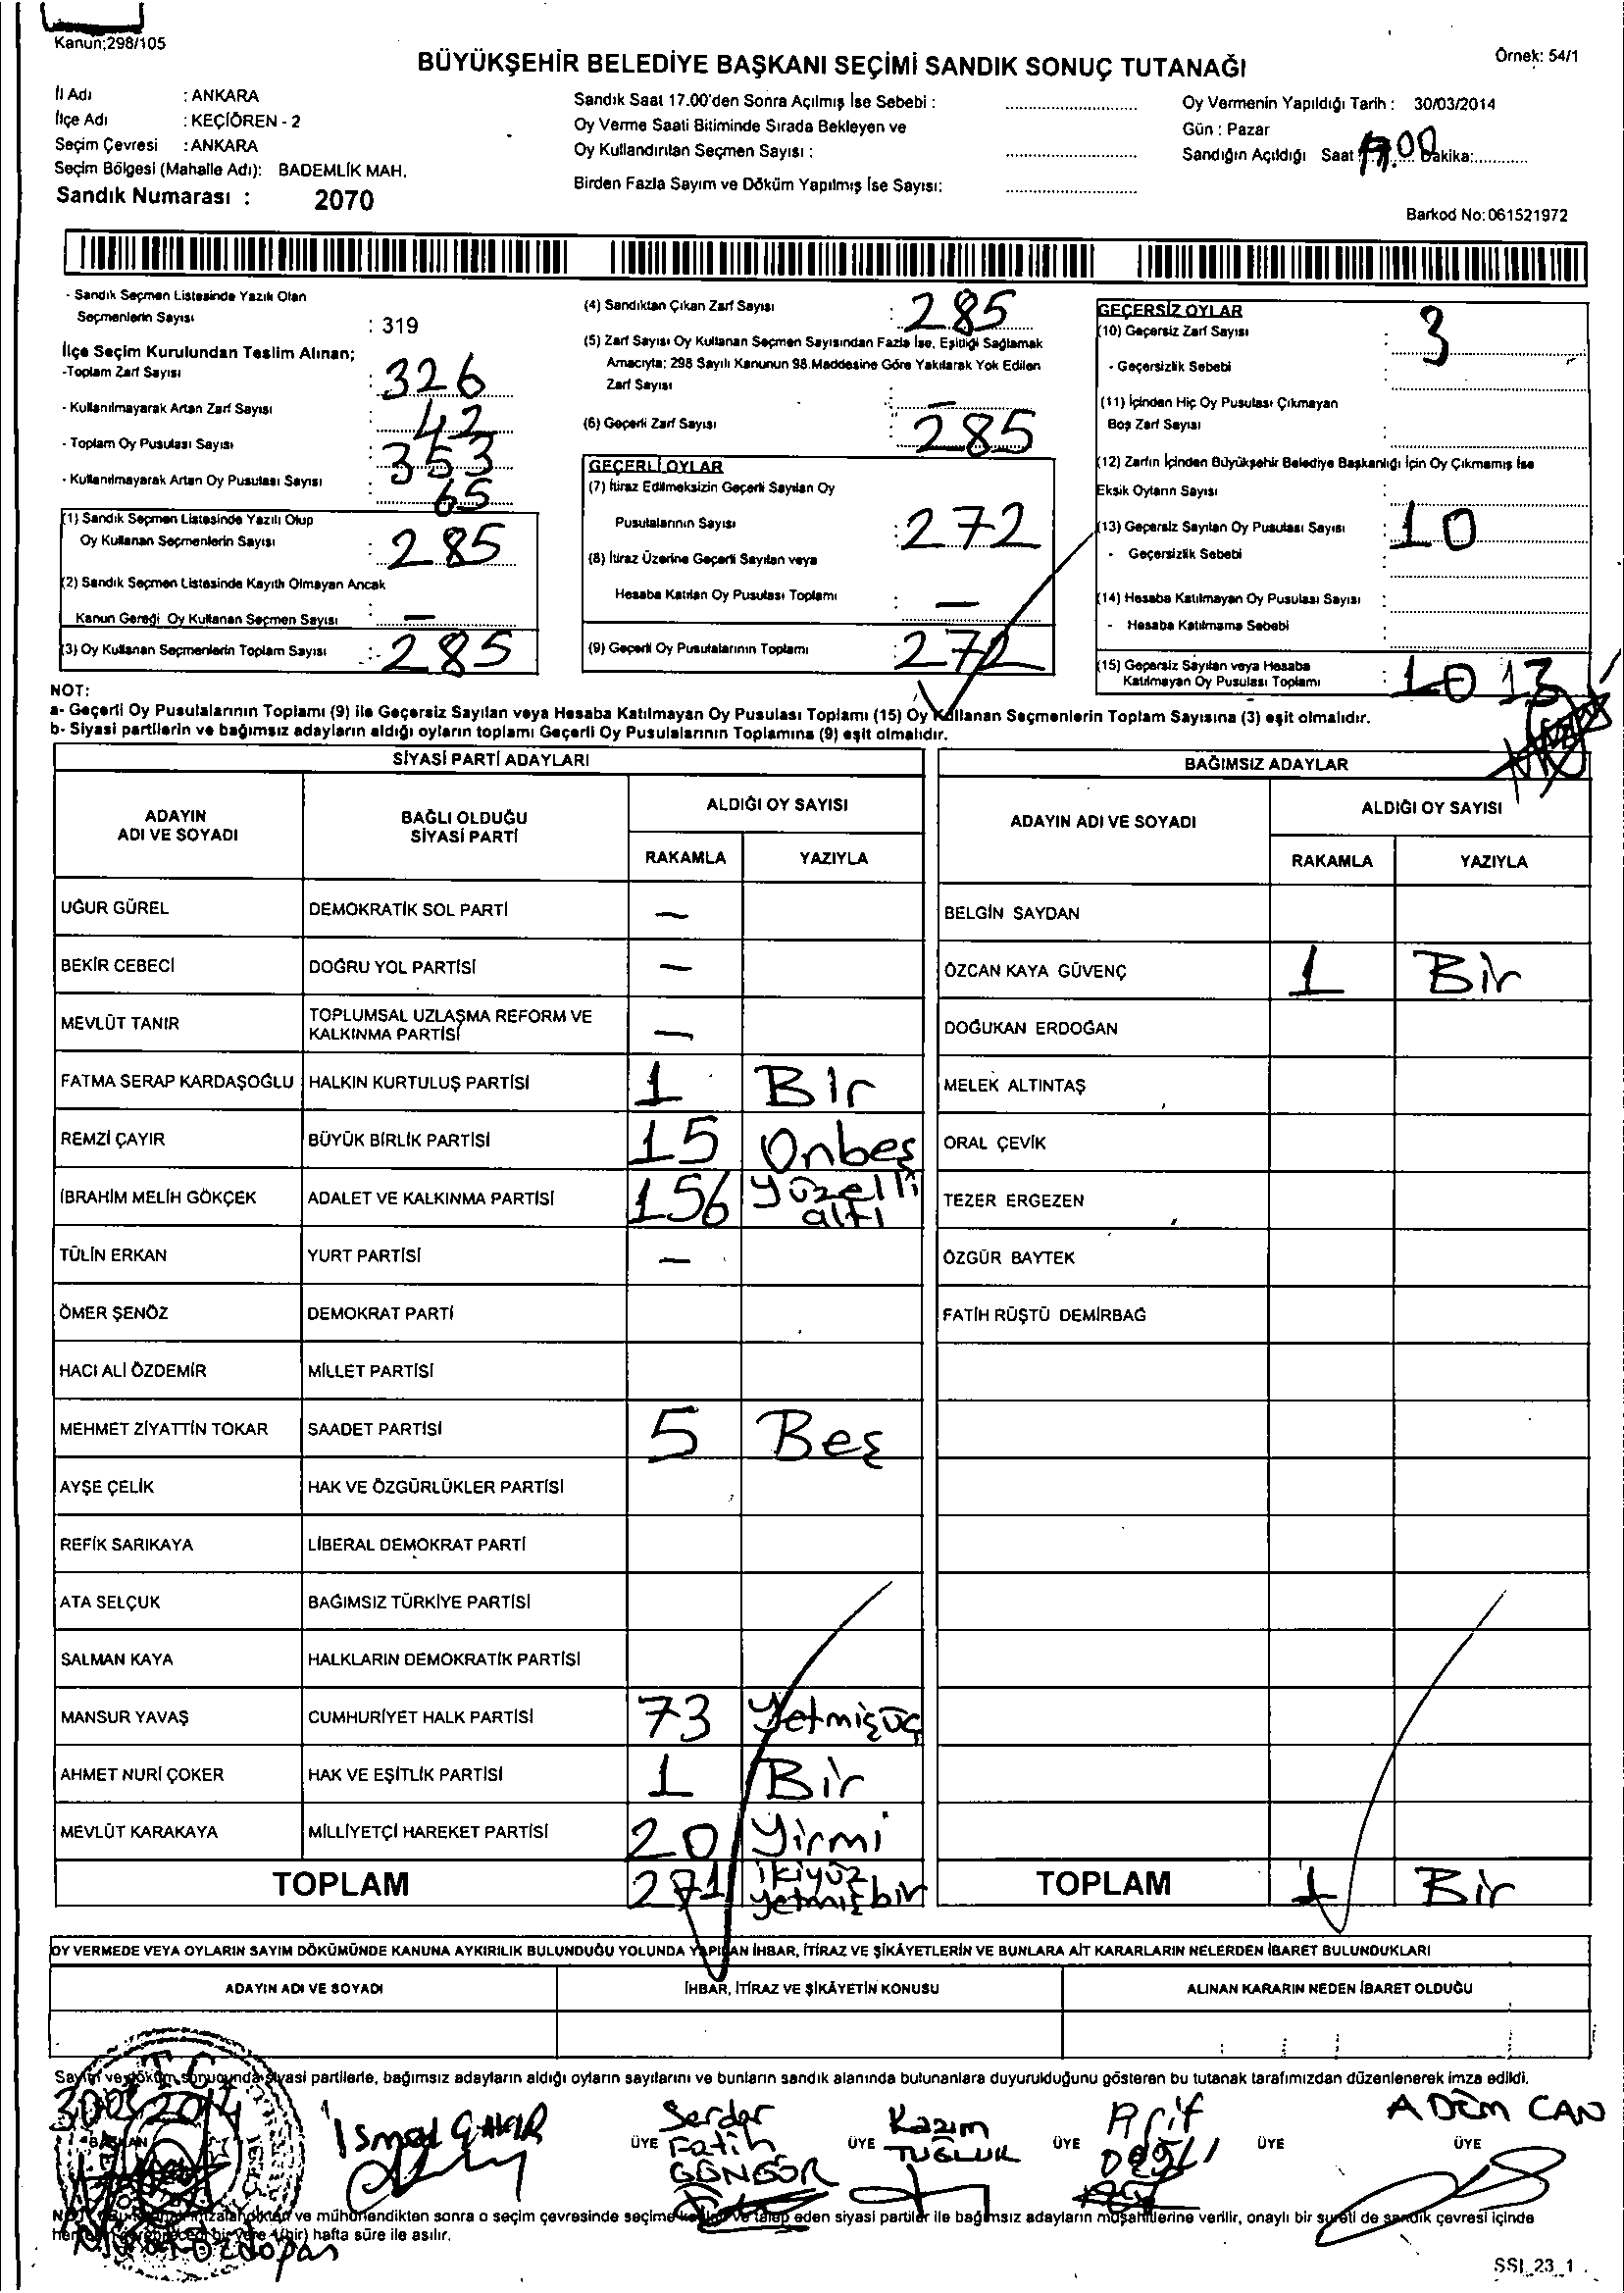 Kanun;298/105
Örnek: 54/1
BÜYÜKŞEHİR BELEDİYE BAŞKANI SEÇİMİ SANDIK SONUÇ TUTANAĞI
İl Adı : ANKARA
İlçe Adı : KEÇİÖREN - 2
Seçim Çevresi : ANKARA
Seçim Bölgesi (Mahalle Adı): BADEMLİK MAH.
Sandık Numarası : 2070
Sandık Saat 17.00'den Sonra Açılmış İse Sebebi :
Oy Verme Saati Bitiminde Sırada Bekleyen ve
Oy Kullandırılan Seçmen Sayısı :
Birden Fazla Sayım ve Döküm Yapılmış İse Sayısı:
Oy Vermenin Yapıldığı Tarih : 30/03/2014
Gün : Pazar
Sandığın Açıldığı Saat 17.00 Dakika:
Barkod No:061521972
- Sandık Seçmen Listesinde Yazılı Olan
Seçmenlerin Sayısı : 319
İlçe Seçim Kurulundan Teslim Alınan;
-Toplam Zarf Sayısı : 326
- Kullanılmayarak Artan Zarf Sayısı : 42
- Toplam Oy Pusulası Sayısı : 353
- Kullanılmayarak Artan Oy Pusulası Sayısı : 65
(1) Sandık Seçmen Listesinde Yazılı Olup
Oy Kullanan Seçmenlerin Sayısı : 285
(2) Sandık Seçmen Listesinde Kayıtlı Olmayan Ancak
Kanun Gereği Oy Kullanan Seçmen Sayısı : —
(3) Oy Kullanan Seçmenlerin Toplam Sayısı : 285
(4) Sandıktan Çıkan Zarf Sayısı : 285
(5) Zarf Sayısı Oy Kullanan Seçmen Sayısından Fazla İse, Eşitliği Sağlamak
Amacıyla; 298 Sayılı Kanunun 98.Maddesine Göre Yakılarak Yok Edilen
Zarf Sayısı : —
(6) Geçerli Zarf Sayısı : 285
GEÇERLİ OYLAR
(7) İtiraz Edilmeksizin Geçerli Sayılan Oy
Pusulalarının Sayısı : 272
(8) İtiraz Üzerine Geçerli Sayılan veya
Hesaba Katılan Oy Pusulası Toplamı : —
(9) Geçerli Oy Pusulalarının Toplamı : 272
GEÇERSİZ OYLAR
(10) Geçersiz Zarf Sayısı : 3
- Geçersizlik Sebebi :
(11) İçinden Hiç Oy Pusulası Çıkmayan
Boş Zarf Sayısı :
(12) Zarfın İçinden Büyükşehir Belediye Başkanlığı İçin Oy Çıkmamış İse
Eksik Oyların Sayısı :
(13) Geçersiz Sayılan Oy Pusulası Sayısı : 10
- Geçersizlik Sebebi
(14) Hesaba Katılmayan Oy Pusulası Sayısı :
- Hesaba Katılmama Sebebi :
(15) Geçersiz Sayılan veya Hesaba
Katılmayan Oy Pusulası Toplamı : 10 13
NOT:
a- Geçerli Oy Pusulalarının Toplamı (9) ile Geçersiz Sayılan veya Hesaba Katılmayan Oy Pusulası Toplamı (15) Oy Kullanan Seçmenlerin Toplam Sayısına (3) eşit olmalıdır.
b- Siyasi partilerin ve bağımsız adayların aldığı oyların toplamı Geçerli Oy Pusulalarının Toplamına (9) eşit olmalıdır.
SİYASİ PARTİ ADAYLARI
ADAYIN ADI VE SOYADI
BAĞLI OLDUĞU SİYASİ PARTİ
ALDIĞI OY SAYISI
RAKAMLA YAZIYLA
UĞUR GÜREL DEMOKRATİK SOL PARTİ —
BEKİR CEBECİ DOĞRU YOL PARTİSİ —
MEVLÜT TANIR TOPLUMSAL UZLAŞMA REFORM VE KALKINMA PARTİSİ —
FATMA SERAP KARDAŞOĞLU HALKIN KURTULUŞ PARTİSİ 1 Bir
REMZİ ÇAYIR BÜYÜK BİRLİK PARTİSİ 15 Onbeş
İBRAHİM MELİH GÖKÇEK ADALET VE KALKINMA PARTİSİ 156 yüzelli altı
TÜLİN ERKAN YURT PARTİSİ —
ÖMER ŞENÖZ DEMOKRAT PARTİ
HACI ALİ ÖZDEMİR MİLLET PARTİSİ
MEHMET ZİYATTİN TOKAR SAADET PARTİSİ 5 Beş
AYŞE ÇELİK HAK VE ÖZGÜRLÜKLER PARTİSİ
REFİK SARIKAYA LİBERAL DEMOKRAT PARTİ
ATA SELÇUK BAĞIMSIZ TÜRKİYE PARTİSİ
SALMAN KAYA HALKLARIN DEMOKRATİK PARTİSİ
MANSUR YAVAŞ CUMHURİYET HALK PARTİSİ 73 Yetmişüç
AHMET NURİ ÇOKER HAK VE EŞİTLİK PARTİSİ 1 Bir
MEVLÜT KARAKAYA MİLLİYETÇİ HAREKET PARTİSİ 20 Yirmi
TOPLAM 271 ikiyüz yetmişbir
BAĞIMSIZ ADAYLAR
ADAYIN ADI VE SOYADI
ALDIĞI OY SAYISI
RAKAMLA YAZIYLA
BELGİN SAYDAN
ÖZCAN KAYA GÜVENÇ 1 Bir
DOĞUKAN ERDOĞAN
MELEK ALTINTAŞ
ORAL ÇEVİK
TEZER ERGEZEN
ÖZGÜR BAYTEK
FATİH RÜŞTÜ DEMİRBAĞ
TOPLAM 1 Bir
OY VERMEDE VEYA OYLARIN SAYIM DÖKÜMÜNDE KANUNA AYKIRILIK BULUNDUĞU YOLUNDA YAPILAN İHBAR, İTİRAZ VE ŞİKÂYETLERİN VE BUNLARA AİT KARARLARIN NELERDEN İBARET BULUNDUKLARI
ADAYIN ADI VE SOYADI İHBAR, İTİRAZ VE ŞİKÂYETİN KONUSU ALINAN KARARIN NEDEN İBARET OLDUĞU
Sayım ve döküm sonucunda siyasi partilerle, bağımsız adayların aldığı oyların sayılarını ve bunların sandık alanında bulunanlara duyurulduğunu gösteren bu tutanak tarafımızdan düzenlenerek imza edildi.
T.C.
BAŞKAN
ÜYE Serdar Fatih GÜNGÖR
ÜYE Kazım TUĞLUK
ÜYE Arif
ÜYE
ÜYE ADEM CAN
ve mühürlendikten sonra o seçim çevresinde seçime katılan ve talep eden siyasi partiler ile bağımsız adayların müşahitlerine verilir, onaylı bir sureti de sandık çevresi içinde
hafta süre ile asılır.
SSI_23_1